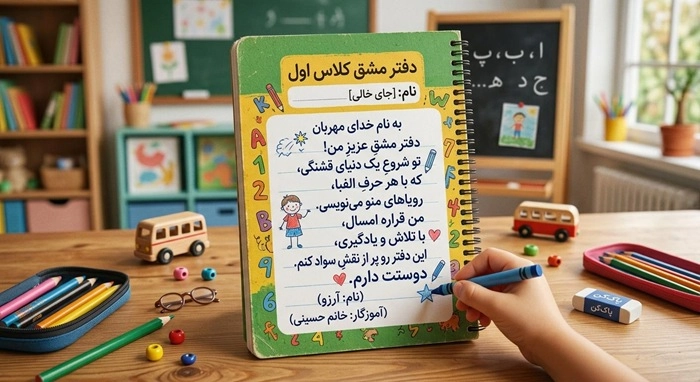 دفتر مشق کلاس اول
نام: [جای خالی]
به نام خدای مهربان
دفتر مشقِ عزیزِ من!
تو شروع یک دنیای قشنگی،
که با هر حرفِ الفبا،
رویاهای منو می‌نویسی.
من قراره امسال،
با تلاش و یادگیری،
این دفتر رو پر از نقشِ سواد کنم.
دوستت دارم.
(نام: آرزو)
(آموزگار: خانم حسینی)
ا، ب، پ
ج د ه...
پاک‌کن